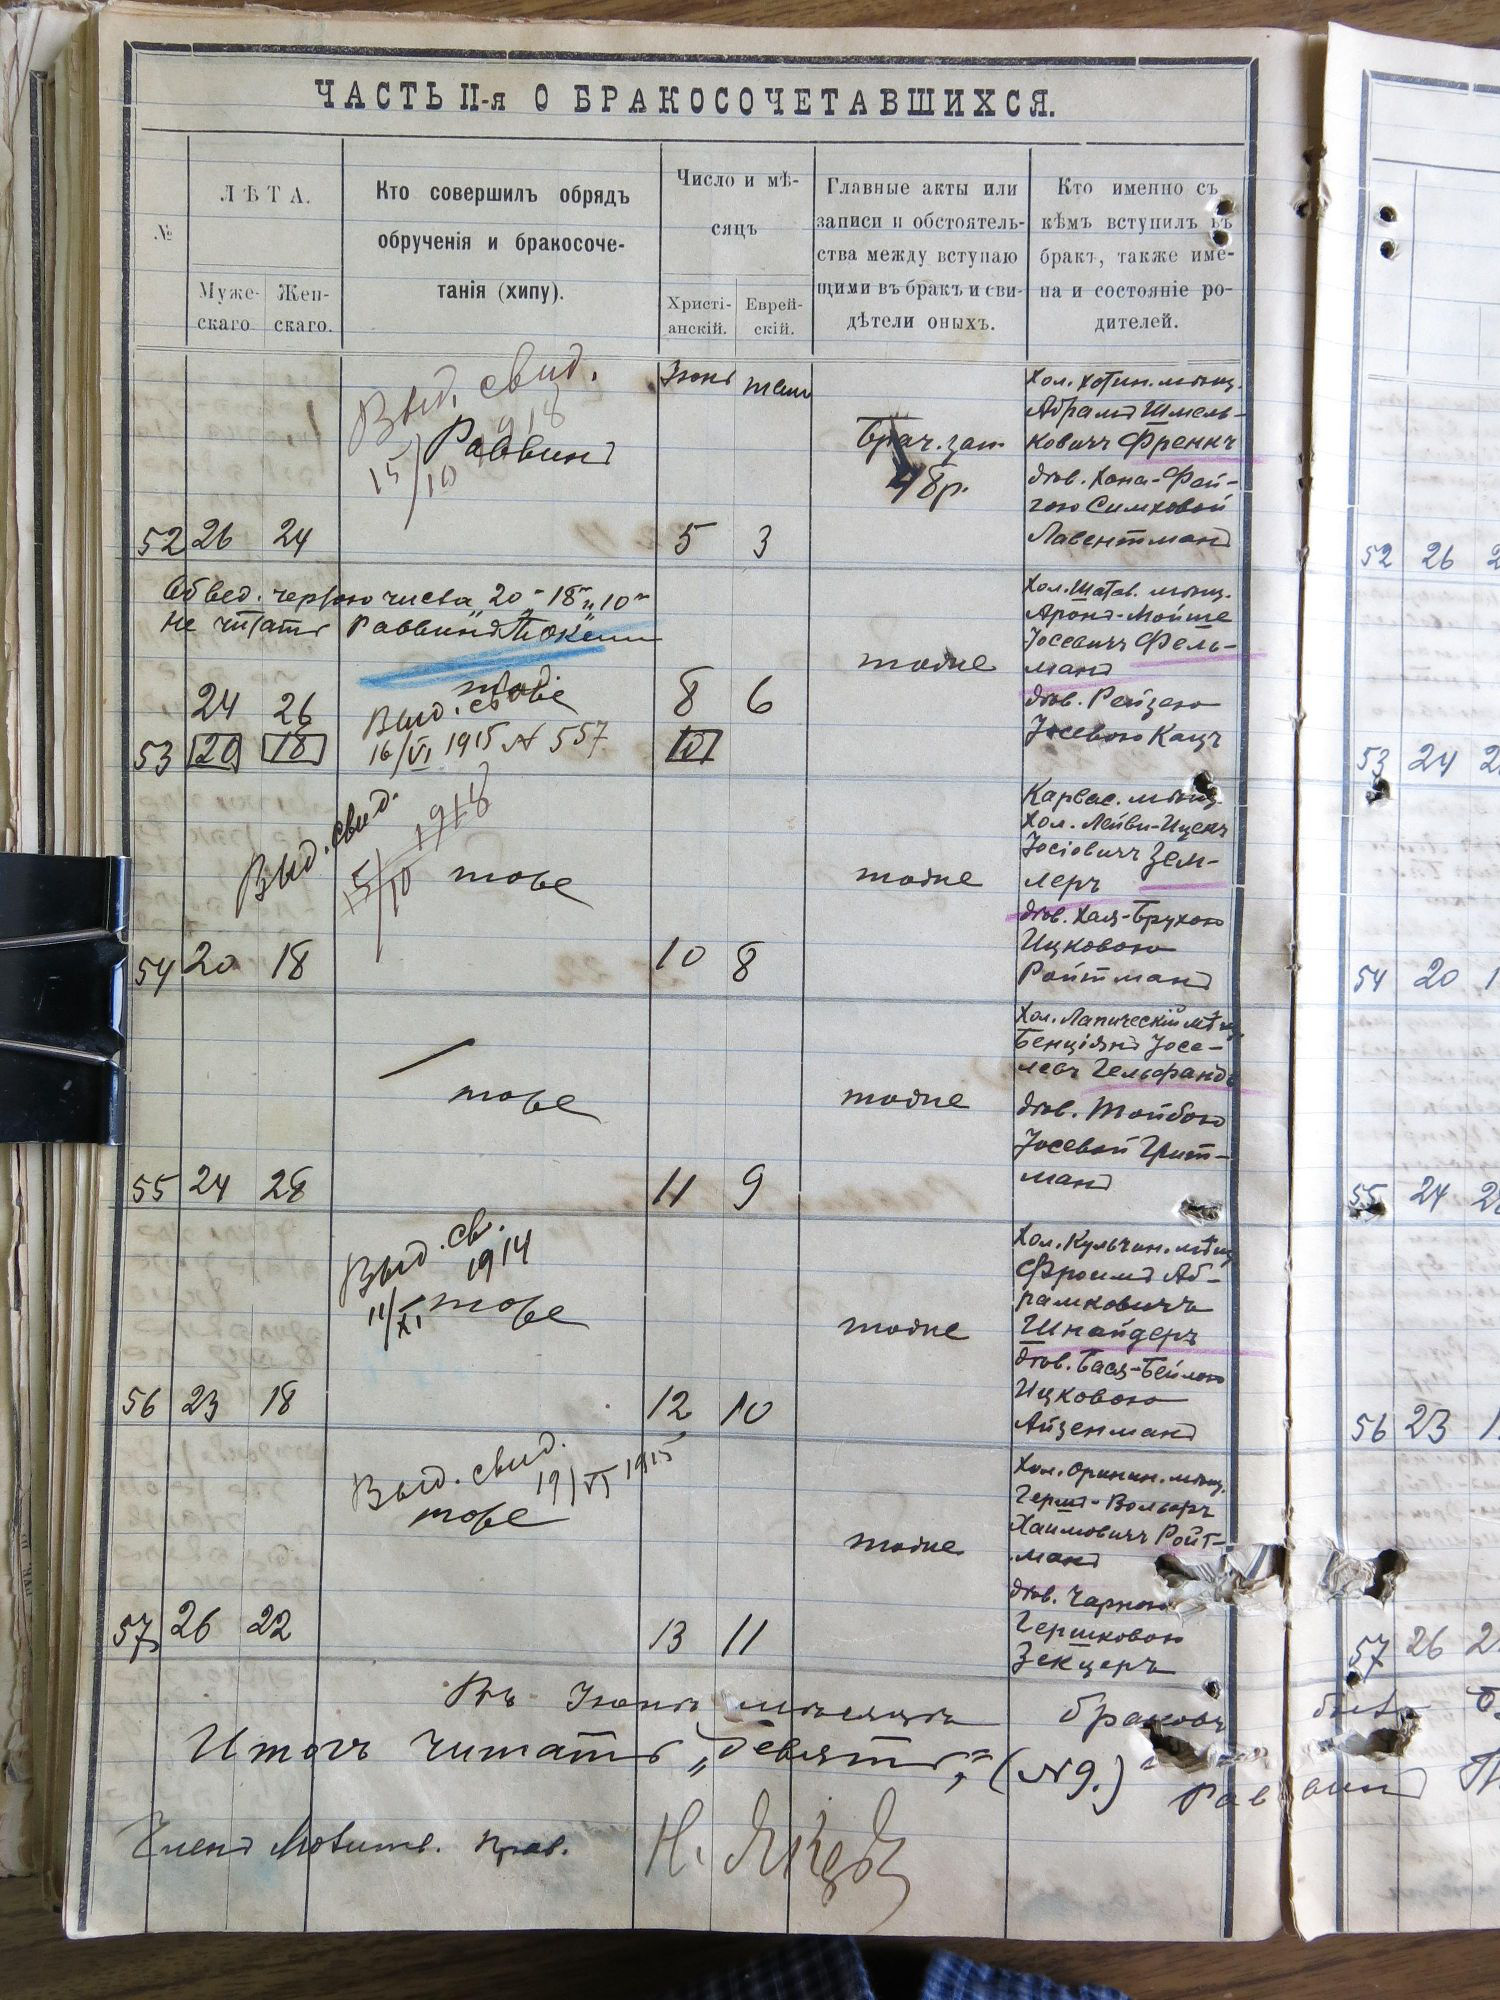 ЧАСТЬ II-я О БРАКОСОЧЕТАВШИХСЯ.
№
ЛѢТА.
Муже-
скаго
Жен-
скаго.
Кто совершилъ обрядъ
обрученія и бракосоче-
танія (хипу).
Число и мѣ-
сяцъ
Христі-
анскій.
Еврей-
скій.
Главные акты или
записи и обстоятель-
ства между вступаю
щими въ бракъ и сви-
дѣтели оныхъ.
Кто именно съ
кѣмъ вступилъ въ
бракъ, также име-
на и состояніе ро-
дителей.
Выд. свид.
15/10 1918
Раввинъ
52 26 24
5 3
Брач. зап.
Хол. Хотин. мѣщ.
Абрамъ Шмель-
ковичъ Френкъ
дѣв. Хана-Фей-
гою Симховой
Лавентманъ
Обвед. чертою числа "20" "18" и "10"
не читать Раввинъ
тоже
Выд. св.
16/VI 1915 № 557
24 26
53 20 18
8 6
10
тоже
Хол. Шатав. мѣщ.
Аронъ-Мойше
Іосевичъ Фель-
манъ
дѣв. Рейзею
Іосевою Кацъ
Выд. свид.
15/10 1918
тоже
54 20 18
10 8
тоже
Карвас. мѣщ.
Хол. Лейви-Ицекъ
Іосіовичъ Зем-
леръ
дѣв. Хая-Брухою
Ицковою
Ройтманъ
тоже
55 24 28
11 9
тоже
Хол. Лапическій мѣщ.
Бенціянъ Іосе-
левъ Гельфандъ
дѣв. Тойбою
Іосевой Грит-
манъ
Выд. св.
1914
11/XI
тоже
56 23 18
12 10
тоже
Хол. Кульчин. мѣщ.
Фроимъ Аб-
рамковичъ
Шнайдеръ
дѣв. Бася-Бейлою
Ицковою
Айзенманъ
Выд. свид.
19/VI 1915
тоже
57 26 22
13 11
тоже
Хол. Оринин. мѣщ.
Герш-Вольфъ
Хаимовичъ Ройт-
манъ
дѣв. Чарною
Гершковою
Зекцеръ
Въ Іюнь мѣсяцѣ браковъ
Итогъ читать „девять“ (№ 9.)
Раввинъ
Членъ Молитв. Прав.
52 26
53 24
54 20
55 24
56 23
57 26